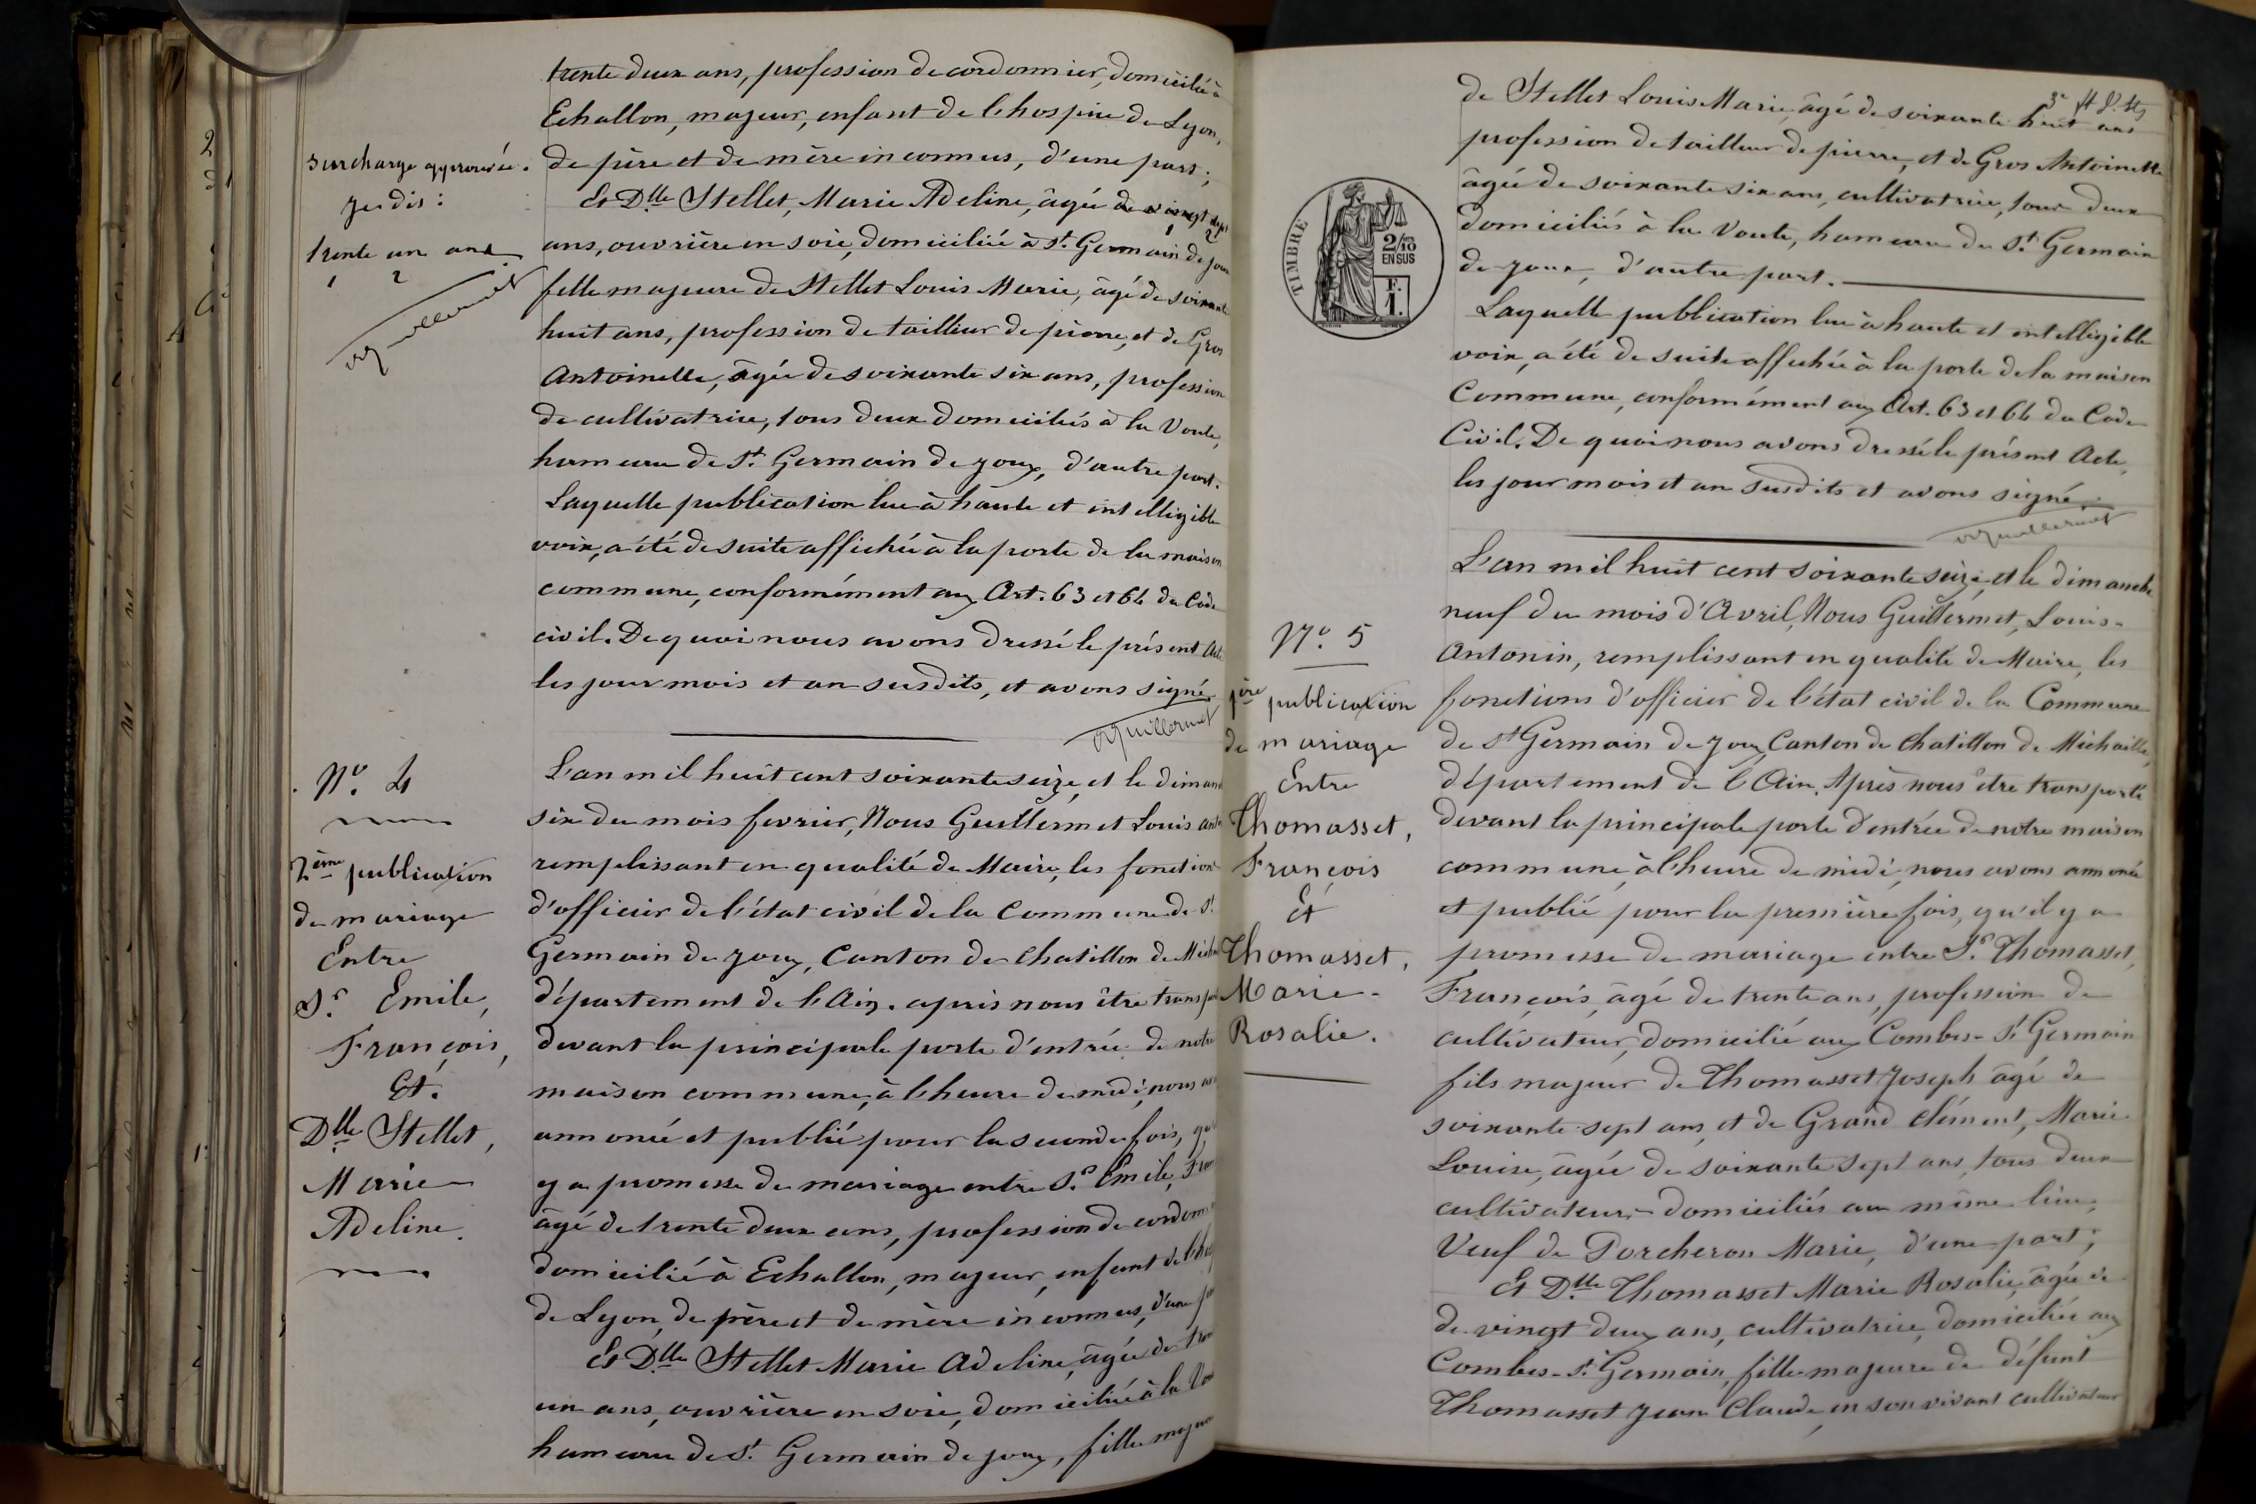 trente deux ans, profession de cordonnier, domicilié à
Echallon, majeur, enfant de l'hospice de Lyon,
surcharge approuvée.
de père et de mère inconnus, d'une part;
Je dis:
Et Dlle Stellet, Marie Adeline, âgée de vingt sept
trente un ans
ans, ouvrière en soie, domiciliée à St. Germain de joux
1 2
fille majeure de Stellet Louis Marie, âgé de soixante
Guillermet
huit ans, profession de tailleur de pierre, et de Gros
Antoinette, âgée de soixante six ans, profession
de cultivatrice, tous deux domiciliés à la Voute,
hameau de St. Germain de joux, d'autre part.
Laquelle publication lue à haute et intelligible
voix, a été de suite affichée à la porte de la maison
commune, conformément aux Art. 63 et 64 du Code
civil. De quoi nous avons dressé le présent Acte
les jour mois et an susdits, et avons signé
Guillermet
No. 4
2ème publication
de mariage
Entre
Sr. Emile,
François,
Et.
Dlle Stellet,
Marie
Adeline.
L'an mil huit cent soixante seize, et le diman
six du mois fevrier, Nous Guillermet Louis anto
remplissant en qualité de Maire, les fonction
d'officier de l'état civil de la Commune de St.
Germain de joux, Canton de Chatillon de Mich
département de l'Ain. après nous être transpor
devant la principale porte d'entrée de notre
maison commune, à l'heure de midi, nous av
annoncé et publié pour la seconde fois, qu'
y a promesse de mariage entre Sr. Emile, Fran
âgé de trente deux ans, profession de cordonn
domicilié à Echallon, majeur, enfant de l'ho
de Lyon, de père et de mère inconnus, d'une p
Et Dlle Stellet Marie Adeline, âgée de tren
un ans, ouvrière en soie, domiciliée à la Vou
hameau de St. Germain de joux, fille majeu
3e
de Stellet Louis Marie, âgé de soixante huit ans
profession de tailleur de pierre, et de Gros Antoinette
âgée de soixante six ans, cultivatrice, tous deux
domiciliés à la Voute, hameau de St. Germain
de joux, d'autre part.
TIMBRE
2/10
EN SUS
F.
1.
Laquelle publication lue à haute et intelligible
voix, a été de suite affichée à la porte de la maison
Commune, conformément aux Art. 63 et 64 du Code
Civil. De quoi nous avons dressé le présent Acte,
les jour mois et an susdits et avons signé.
Guillermet
No. 5
1ère publication
de mariage
Entre
Thomasset,
François
Et
Thomasset,
Marie-
Rosalie.
L'an mil huit cent soixante seize, et le dimanche
neuf du mois d'Avril, Nous Guillermet, Louis-
Antonin, remplissant en qualité de Maire, les
fonctions d'officier de l'état civil de la Commune
de St Germain de joux, Canton de Chatillon de Michaille,
département de l'Ain. Après nous être transporté
devant la principale porte d'entrée de notre maison
commune, à l'heure de midi, nous avons annoncé
et publié pour la première fois, qu'il y a
promesse de mariage entre Sr. Thomasset,
François, âgé de trente ans, profession de
cultivateur, domicilié aux Combes-St Germain
fils majeur de Thomasset Joseph âgé de
soixante-sept ans, et de Grand clément, Marie
Louise, âgée de soixante sept ans, tous deux
cultivateurs - domiciliés au même lieu,
Veuf de Porcheron Marie, d'une part;
Et Dlle Thomasset Marie Rosalie, âgée de
de vingt deux ans, cultivatrice, domiciliée aux
Combes-St. Germain, fille majeure de défunt
Thomasset Jean Claude, en son vivant cultivateur